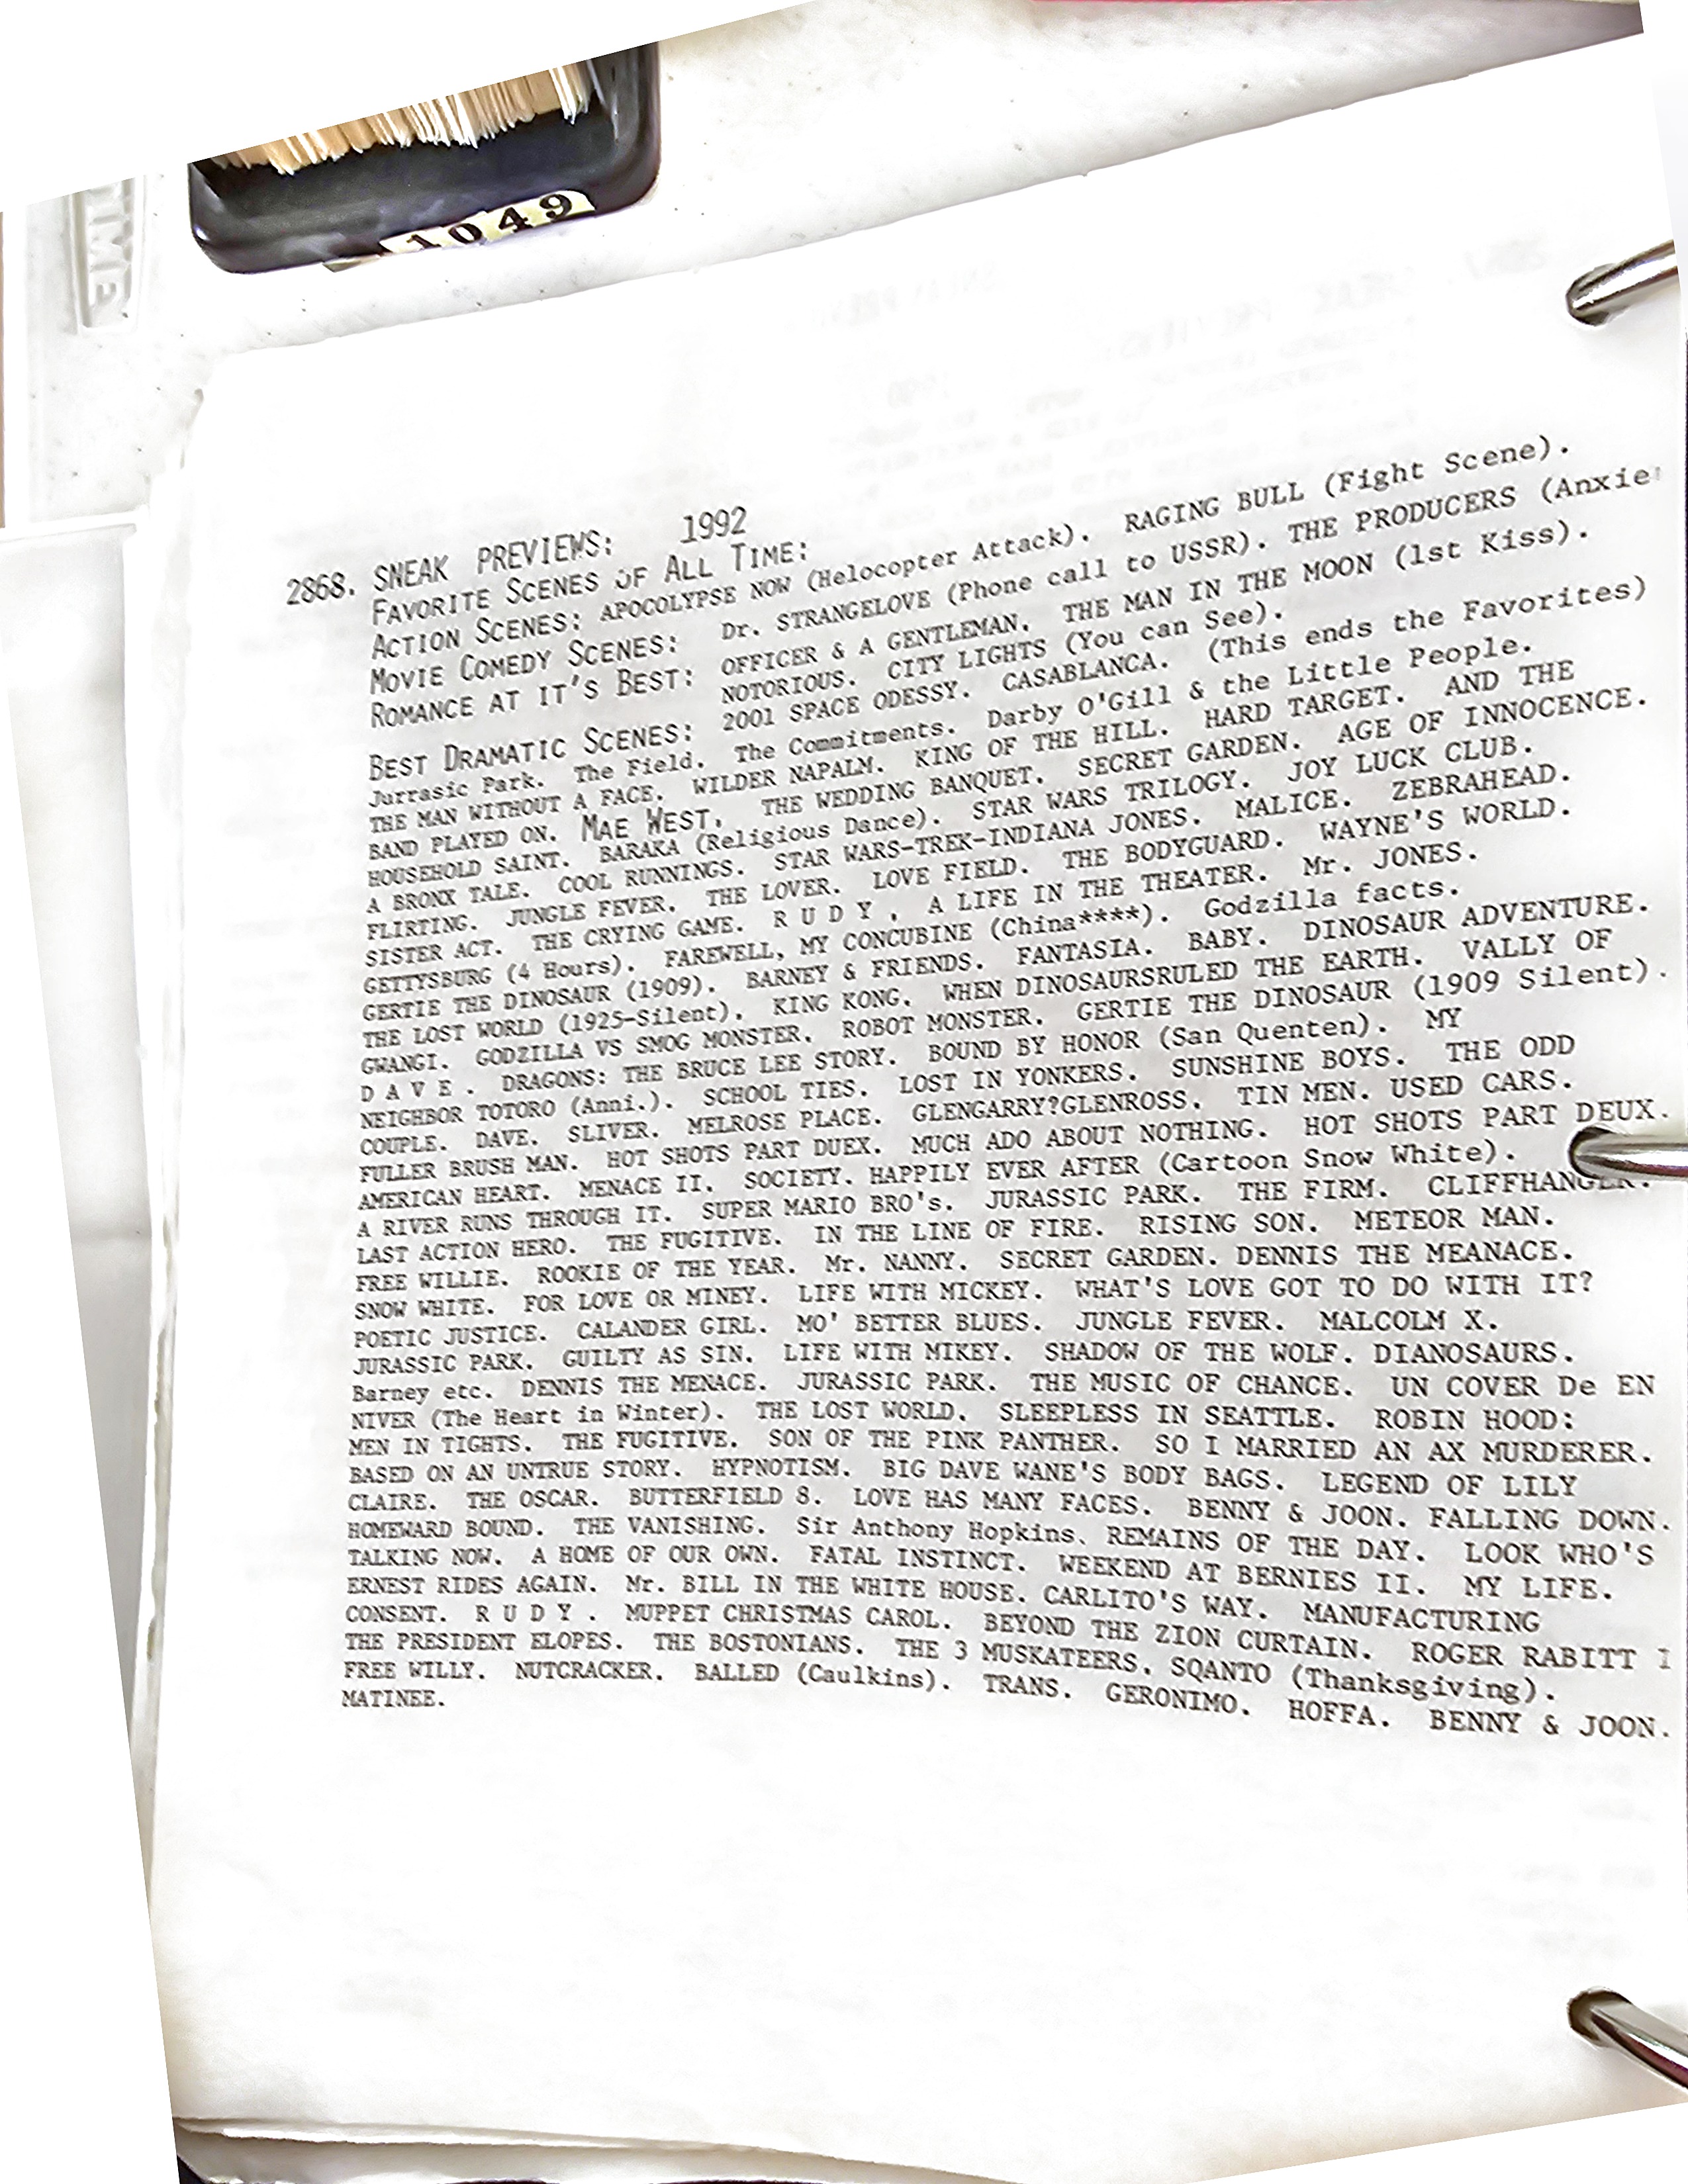 1049
TIME
2868. SNEAK PREVIEWS: 1992
FAVORITE SCENES OF ALL TIME:
ACTION SCENES: APOCOLYPSE NOW (Helocopter Attack). RAGING BULL (Fight Scene).
MOVIE COMEDY SCENES: Dr. STRANGELOVE (Phone call to USSR). THE PRODUCERS (Anxie
ROMANCE AT IT'S BEST: OFFICER & A GENTLEMAN. THE MAN IN THE MOON (1st Kiss).
NOTORIOUS. CITY LIGHTS (You can See).
BEST DRAMATIC SCENES: 2001 SPACE ODESSY. CASABLANCA. (This ends the Favorites)
Jurrasic Park. The Field. The Commitments. Darby O'Gill & the Little People.
THE MAN WITHOUT A FACE. WILDER NAPALM. KING OF THE HILL. HARD TARGET. AND THE
BAND PLAYED ON. MAE WEST. THE WEDDING BANQUET. SECRET GARDEN. AGE OF INNOCENCE.
HOUSEHOLD SAINT. BARAKA (Religious Dance). STAR WARS TRILOGY. JOY LUCK CLUB.
A BRONX TALE. COOL RUNNINGS. STAR WARS-TREK-INDIANA JONES. MALICE. ZEBRAHEAD.
FLIRTING. JUNGLE FEVER. THE LOVER. LOVE FIELD. THE BODYGUARD. WAYNE'S WORLD.
SISTER ACT. THE CRYING GAME. R U D Y . A LIFE IN THE THEATER. Mr. JONES.
GETTYSBURG (4 Hours). FAREWELL, MY CONCUBINE (China****). Godzilla facts.
GERTIE THE DINOSAUR (1909). BARNEY & FRIENDS. FANTASIA. BABY. DINOSAUR ADVENTURE.
THE LOST WORLD (1925-Silent). KING KONG. WHEN DINOSAURSRULED THE EARTH. VALLY OF
GWANGI. GODZILLA VS SMOG MONSTER. ROBOT MONSTER. GERTIE THE DINOSAUR (1909 Silent).
D A V E . DRAGONS: THE BRUCE LEE STORY. BOUND BY HONOR (San Quenten). MY
NEIGHBOR TOTORO (Anni.). SCHOOL TIES. LOST IN YONKERS. SUNSHINE BOYS. THE ODD
COUPLE. DAVE. SLIVER. MELROSE PLACE. GLENGARRY?GLENROSS. TIN MEN. USED CARS.
FULLER BRUSH MAN. HOT SHOTS PART DUEX. MUCH ADO ABOUT NOTHING. HOT SHOTS PART DEUX.
AMERICAN HEART. MENACE II. SOCIETY. HAPPILY EVER AFTER (Cartoon Snow White).
A RIVER RUNS THROUGH IT. SUPER MARIO BRO's. JURASSIC PARK. THE FIRM. CLIFFHANGER.
LAST ACTION HERO. THE FUGITIVE. IN THE LINE OF FIRE. RISING SON. METEOR MAN.
FREE WILLIE. ROOKIE OF THE YEAR. Mr. NANNY. SECRET GARDEN. DENNIS THE MEANACE.
SNOW WHITE. FOR LOVE OR MINEY. LIFE WITH MICKEY. WHAT'S LOVE GOT TO DO WITH IT?
POETIC JUSTICE. CALANDER GIRL. MO' BETTER BLUES. JUNGLE FEVER. MALCOLM X.
JURASSIC PARK. GUILTY AS SIN. LIFE WITH MIKEY. SHADOW OF THE WOLF. DIANOSAURS.
Barney etc. DENNIS THE MENACE. JURASSIC PARK. THE MUSIC OF CHANCE. UN COVER De EN
NIVER (The Heart in Winter). THE LOST WORLD. SLEEPLESS IN SEATTLE. ROBIN HOOD:
MEN IN TIGHTS. THE FUGITIVE. SON OF THE PINK PANTHER. SO I MARRIED AN AX MURDERER.
BASED ON AN UNTRUE STORY. HYPNOTISM. BIG DAVE WANE'S BODY BAGS. LEGEND OF LILY
CLAIRE. THE OSCAR. BUTTERFIELD 8. LOVE HAS MANY FACES. BENNY & JOON. FALLING DOWN.
HOMEWARD BOUND. THE VANISHING. Sir Anthony Hopkins. REMAINS OF THE DAY. LOOK WHO'S
TALKING NOW. A HOME OF OUR OWN. FATAL INSTINCT. WEEKEND AT BERNIES II. MY LIFE.
ERNEST RIDES AGAIN. Mr. BILL IN THE WHITE HOUSE. CARLITO'S WAY. MANUFACTURING
CONSENT. R U D Y . MUPPET CHRISTMAS CAROL. BEYOND THE ZION CURTAIN. ROGER RABITT I
THE PRESIDENT ELOPES. THE BOSTONIANS. THE 3 MUSKATEERS. SQANTO (Thanksgiving).
FREE WILLY. NUTCRACKER. BALLED (Caulkins). TRANS. GERONIMO. HOFFA. BENNY & JOON.
MATINEE.